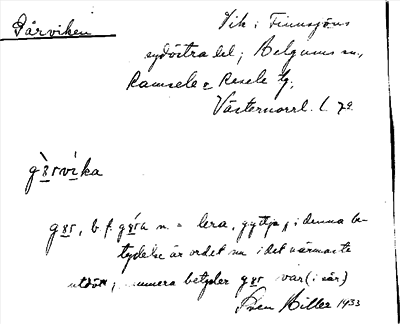 Gårviken
Vik i Finnsjöns
sydöstra del; Helgums sn,
Ramsele & Resele tg,
Västernorrl. l.
gàrvíka
b. f. n. = lera, gyttja, i denna be-
tydelse är ordet nu i det närmaste
utdött, numera betyder var (i sår)
Hiller 1933